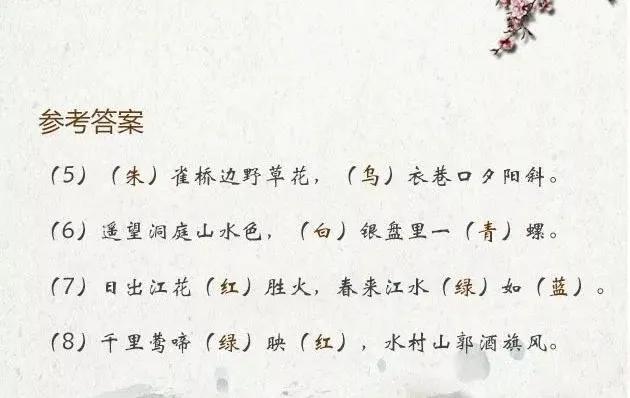 参考答案
（5）（朱）雀桥边野草花，（乌）衣巷口夕阳斜。
（6）遥望洞庭山水色，（白）银盘里一（青）螺。
（7）日出江花（红）胜火，春来江水（绿）如（蓝）。
（8）千里莺啼（绿）映（红），水村山郭酒旗风。